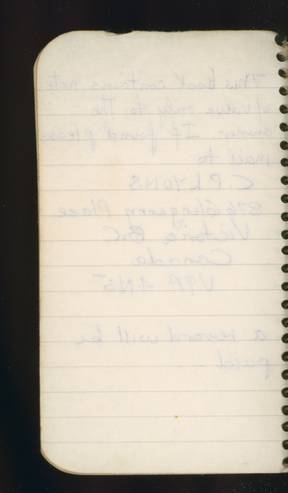 This book contains note
of value only to The
owner. If found please
mail to
C. P. LYONS
876 Glengarry Place
Victoria B.C
Canada
a reward will be
paid.